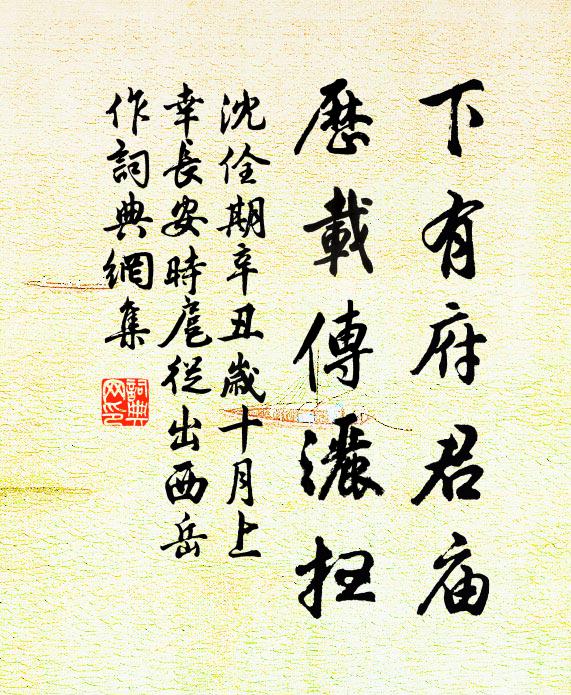 下有府君庙
歷載傳灑扫
沈佺期辛丑歲十月上
幸長安時扈從出西岳
作詞典網集
詞典
网印